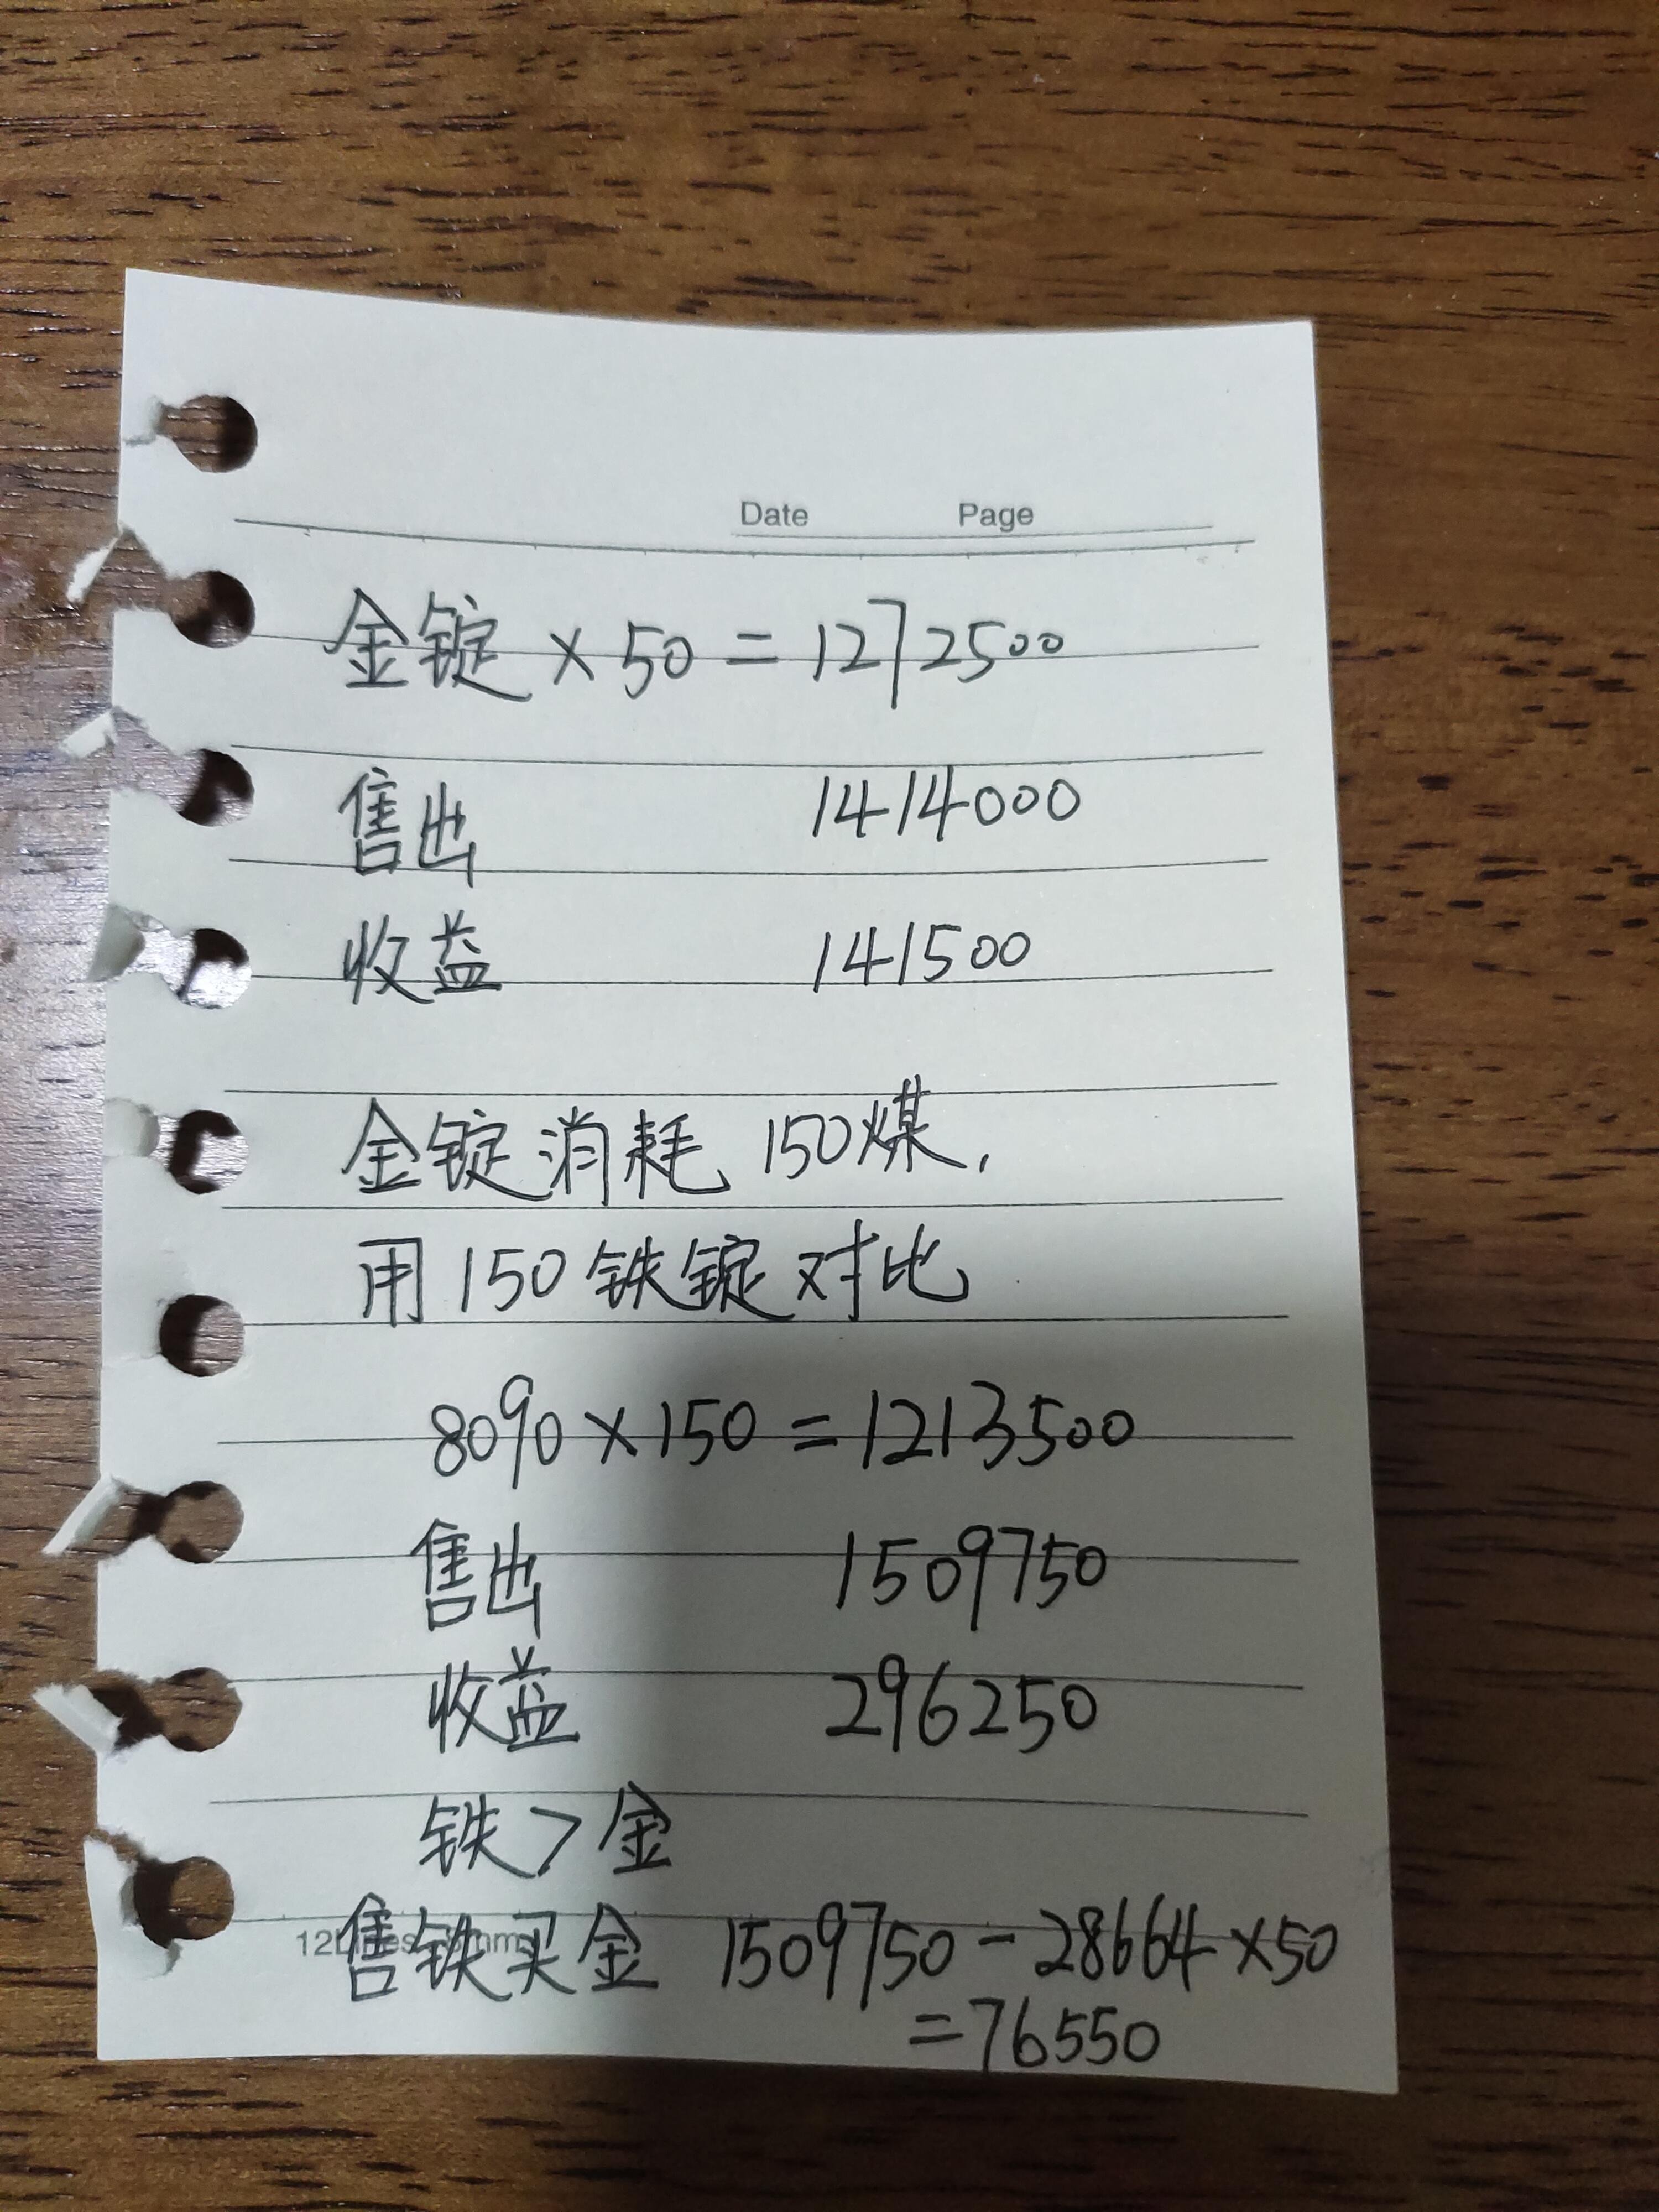 Date Page
金锭 × 50 = 1272500
售出 1414000
收益 141500
金锭消耗 150煤,
用 150 铁锭对比
8090 × 150 = 1213500
售出 1509750
收益 296250
铁 > 金
售铁买金 1509750 - 28664 × 50
= 76550